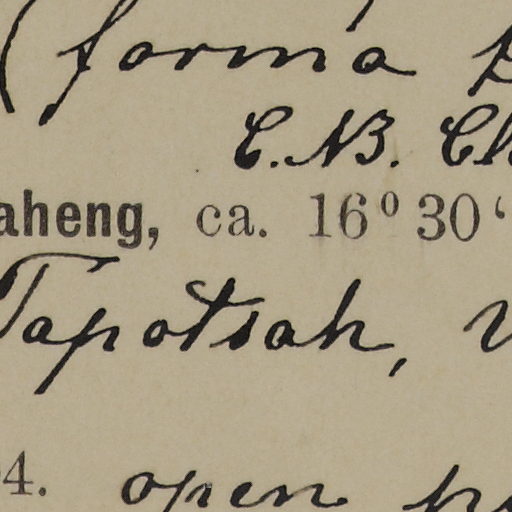 (forma
C.NB. Cl
aheng, ca. 16° 30'
Tapotsah,
4. open